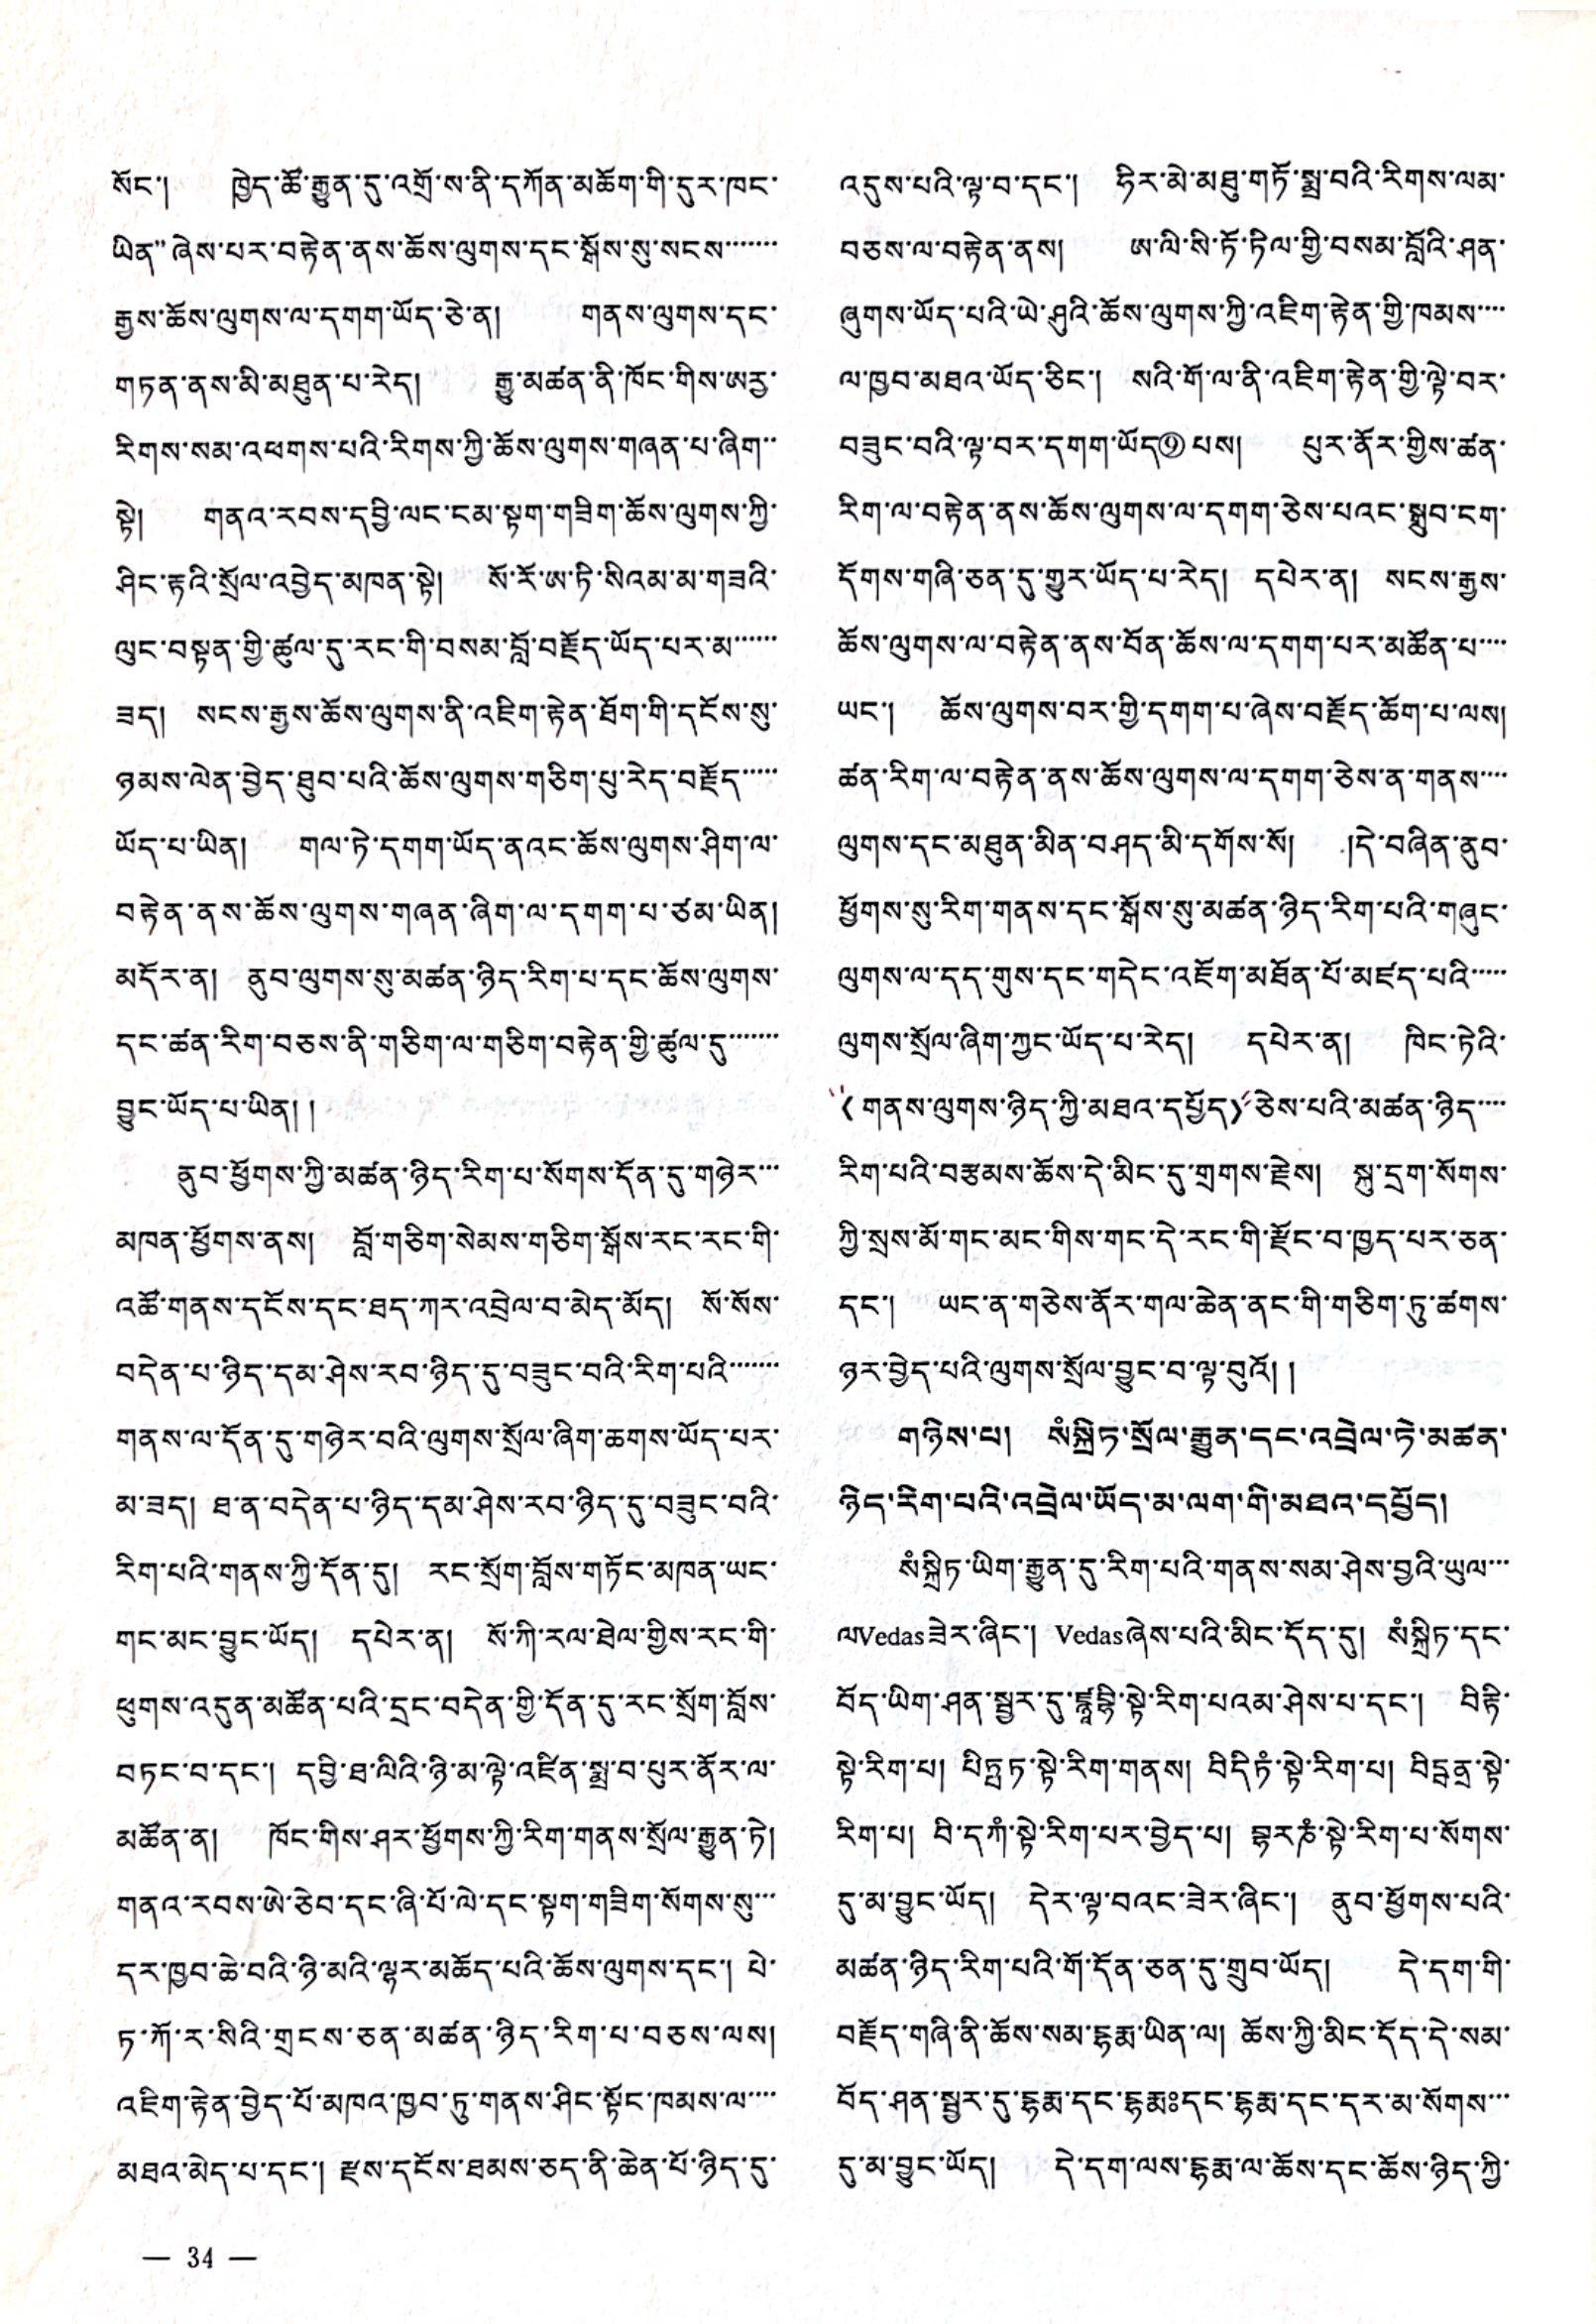 སོང་།  ཁྱེད་ཚོ་རྒྱུན་དུ་འགྲོ་ས་ནི་དཀོན་མཆོག་གི་དུར་ཁང་
ཡིན” ཞེས་པར་བརྟེན་ནས་ཆོས་ལུགས་དང་སྒོས་སུ་སངས་……
རྒྱས་ཆོས་ལུགས་ལ་དགག་ཡོད་ཅེ་ན།  གནས་ལུགས་དང་
གཏན་ནས་མི་མཐུན་པ་རེད།  རྒྱུ་མཚན་ནི་ཁོང་གིས་ཨརྱ་
རིགས་སམ་འཕགས་པའི་རིགས་ཀྱི་ཆོས་ལུགས་གཞན་པ་ཞིག་
སྟེ།  གནའ་རབས་དབྱི་ལང་ངམ་སྟག་གཟིག་ཆོས་ལུགས་ཀྱི་
ཤིང་རྟའི་སྲོལ་འབྱེད་མཁན་སྟེ།  སོ་རོ་ཨ་ཏི་སིའམ་མ་གཟའི་
ལུང་བསྟན་གྱི་ཚུལ་དུ་རང་གི་བསམ་བློ་བརྗོད་ཡོད་པར་མ……
ཟད།  སངས་རྒྱས་ཆོས་ལུགས་ནི་འཇིག་རྟེན་ཐོག་གི་དངོས་སུ་
ཉམས་ལེན་བྱེད་ཐུབ་པའི་ཆོས་ལུགས་གཅིག་པུ་རེད་བརྗོད……
ཡོད་པ་ཡིན།  གལ་ཏེ་དགག་ཡོད་ནའང་ཆོས་ལུགས་ཤིག་ལ་
བརྟེན་ནས་ཆོས་ལུགས་གཞན་ཞིག་ལ་དགག་པ་ཙམ་ཡིན།
མདོར་ན།  ནུབ་ལུགས་སུ་མཚན་ཉིད་རིག་པ་དང་ཆོས་ལུགས་
དང་ཚན་རིག་བཅས་ནི་གཅིག་ལ་གཅིག་བརྟེན་གྱི་ཚུལ་དུ……
བྱུང་ཡོད་པ་ཡིན།།
ནུབ་ཕྱོགས་ཀྱི་མཚན་ཉིད་རིག་པ་སོགས་དོན་དུ་གཉེར…
མཁན་ཕྱོགས་ནས།  བློ་གཅིག་སེམས་གཅིག་སྒོས་རང་རང་གི་
འཚོ་གནས་དངོས་དང་ཐད་ཀར་འབྲེལ་བ་མེད་མོད།  སོ་སོས་
བདེན་པ་ཉིད་དམ་ཤེས་རབ་ཉིད་དུ་བཟུང་བའི་རིག་པའི……
གནས་ལ་དོན་དུ་གཉེར་བའི་ལུགས་སྲོལ་ཞིག་ཆགས་ཡོད་པར་
མ་ཟད།  ཐ་ན་བདེན་པ་ཉིད་དམ་ཤེས་རབ་ཉིད་དུ་བཟུང་བའི་
རིག་པའི་གནས་ཀྱི་དོན་དུ།  རང་སྲོག་བློས་གཏོང་མཁན་ཡང་
གང་མང་བྱུང་ཡོད།  དཔེར་ན།  སོ་ཀི་རལ་ཐེལ་གྱིས་རང་གི་
ཕུགས་འདུན་མཚོན་པའི་དྲང་བདེན་གྱི་དོན་དུ་རང་སྲོག་བློས་
བཏང་བ་དང་།  དབྱི་ཐ་ལིའི་ཉི་མ་ལྟེ་འཛིན་སྨྲ་བ་པུར་ནོར་ལ་
མཚོན་ན།  ཁོང་གིས་ཤར་ཕྱོགས་ཀྱི་རིག་གནས་སྲོལ་རྒྱུན་ཏེ།
གནའ་རབས་ཨེ་ཅེབ་དང་ཞི་པོ་ལེ་དང་སྟག་གཟིག་སོགས་སུ…
དར་ཁྱབ་ཆེ་བའི་ཉི་མའི་ལྷར་མཆོད་པའི་ཆོས་ལུགས་དང་།  པེ་
ཏ་ཀོ་ར་སིའི་གྲངས་ཅན་མཚན་ཉིད་རིག་པ་བཅས་ལས།
འཇིག་རྟེན་བྱེད་པོ་མཁའ་ཁྱབ་ཏུ་གནས་ཤིང་སྟོང་ཁམས་ལ……
མཐའ་མེད་པ་དང་།  རྫས་དངོས་ཐམས་ཅད་ནི་ཆེན་པོ་ཉིད་དུ་
འདུས་པའི་ལྟ་བ་དང་།  ཧིར་མེ་མཐུ་གཏོ་སྨྲ་བའི་རིགས་ལམ་
བཅས་ལ་བརྟེན་ནས།  ཨ་ལི་སི་ཏོ་ཏིལ་གྱི་བསམ་བློའི་ཤན་
ཞུགས་ཡོད་པའི་ཡེ་ཤུའི་ཆོས་ལུགས་ཀྱི་འཇིག་རྟེན་གྱི་ཁམས……
ལ་ཁྱབ་མཐའ་ཡོད་ཅིང་།  སའི་གོ་ལ་ནི་འཇིག་རྟེན་གྱི་ལྟེ་བར་
བཟུང་བའི་ལྟ་བར་དགག་ཡོད༡པས།  པུར་ནོར་གྱིས་ཚན་
རིག་ལ་བརྟེན་ནས་ཆོས་ལུགས་ལ་དགག་ཅེས་པའང་སྒྲུབ་ངག་
དོགས་གཞི་ཅན་དུ་གྱུར་ཡོད་པ་རེད།  དཔེར་ན།  སངས་རྒྱས་
ཆོས་ལུགས་ལ་བརྟེན་ནས་བོན་ཆོས་ལ་དགག་པར་མཚོན་པ……
ཡང་།  ཆོས་ལུགས་བར་གྱི་དགག་པ་ཞེས་བརྗོད་ཆོག་པ་ལས།
ཚན་རིག་ལ་བརྟེན་ནས་ཆོས་ལུགས་ལ་དགག་ཅེས་ན་གནས……
ལུགས་དང་མཐུན་མིན་བཤད་མི་དགོས་སོ།  །དེ་བཞིན་ནུབ་
ཕྱོགས་སུ་རིག་གནས་དང་སྒོས་སུ་མཚན་ཉིད་རིག་པའི་གཞུང་
ལུགས་ལ་དད་གུས་དང་གདེང་འཇོག་མཐོན་པོ་མཛད་པའི……
ལུགས་སྲོལ་ཞིག་ཀྱང་ཡོད་པ་རེད།  དཔེར་ན།  ཁིང་ཏེའི་
“〈གནས་ལུགས་ཉིད་ཀྱི་མཐའ་དཔྱོད〉”ཅེས་པའི་མཚན་ཉིད……
རིག་པའི་བརྩམས་ཆོས་དེ་མིང་དུ་གྲགས་རྗེས།  སྐུ་དྲག་སོགས་
ཀྱི་སྲས་མོ་གང་མང་གིས་གང་དེ་རང་གི་རྫོང་བ་ཁྱད་པར་ཅན་
དང་།  ཡང་ན་གཅེས་ནོར་གལ་ཆེན་ནང་གི་གཅིག་ཏུ་ཚགས་
ཉར་བྱེད་པའི་ལུགས་སྲོལ་བྱུང་བ་ལྟ་བུའོ།།
གཉིས་པ།  སཾསྐྲིཏ་སྲོལ་རྒྱུན་དང་འབྲེལ་ཏེ་མཚན་
ཉིད་རིག་པའི་འབྲེལ་ཡོད་མ་ལག་གི་མཐའ་དཔྱོད།
སཾསྐྲིཏ་ཡིག་རྒྱུན་དུ་རིག་པའི་གནས་སམ་ཤེས་བྱའི་ཡུལ…
ལVedasཟེར་ཞིང་།  Vedasཞེས་པའི་མིང་དོད་དུ།  སཾསྐྲིཏ་དང་
བོད་ཡིག་ཤན་སྦྱར་དུ་སྟེ་རིག་པའམ་ཤེས་པ་དང་།  བིཏྟི་
སྟེ་རིག་པ།  སྟེ་རིག་གནས།  བིདིཏཾ་སྟེ་རིག་པ།  སྟེ་
རིག་པ།  བི་དཀཾ་སྟེ་རིག་པར་བྱེད་པ།  སྟེ་རིག་པ་སོགས་
དུ་མ་བྱུང་ཡོད།  དེར་ལྟ་བའང་ཟེར་ཞིང་།  ནུབ་ཕྱོགས་པའི་
མཚན་ཉིད་རིག་པའི་གོ་དོན་ཅན་དུ་གྲུབ་ཡོད།  དེ་དག་གི་
བརྗོད་གཞི་ནི་ཆོས་སམ་དྷརྨ་ཡིན་ལ།  ཆོས་ཀྱི་མིང་དོད་དེ་སམ་
བོད་ཤན་སྦྱར་དུ་དྷརྨ་དང་དྷརྨཿདང་དྷརྨ་དང་དར་མ་སོགས…
དུ་མ་བྱུང་ཡོད།  དེ་དག་ལས་དྷརྨ་ལ་ཆོས་དང་ཆོས་ཉིད་ཀྱི་
— 34 —